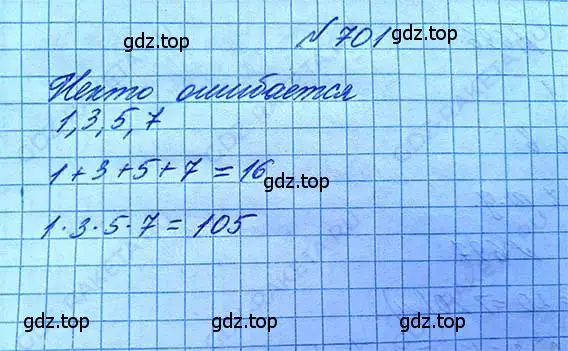 gdz.top № 701 gdz.top
Некто ошибается
1, 3, 5, 7
1 + 3 + 5 + 7 = 16
gdz.top
1 · 3 · 5 · 7 = 105
gdz.top gdz.top gdz.top